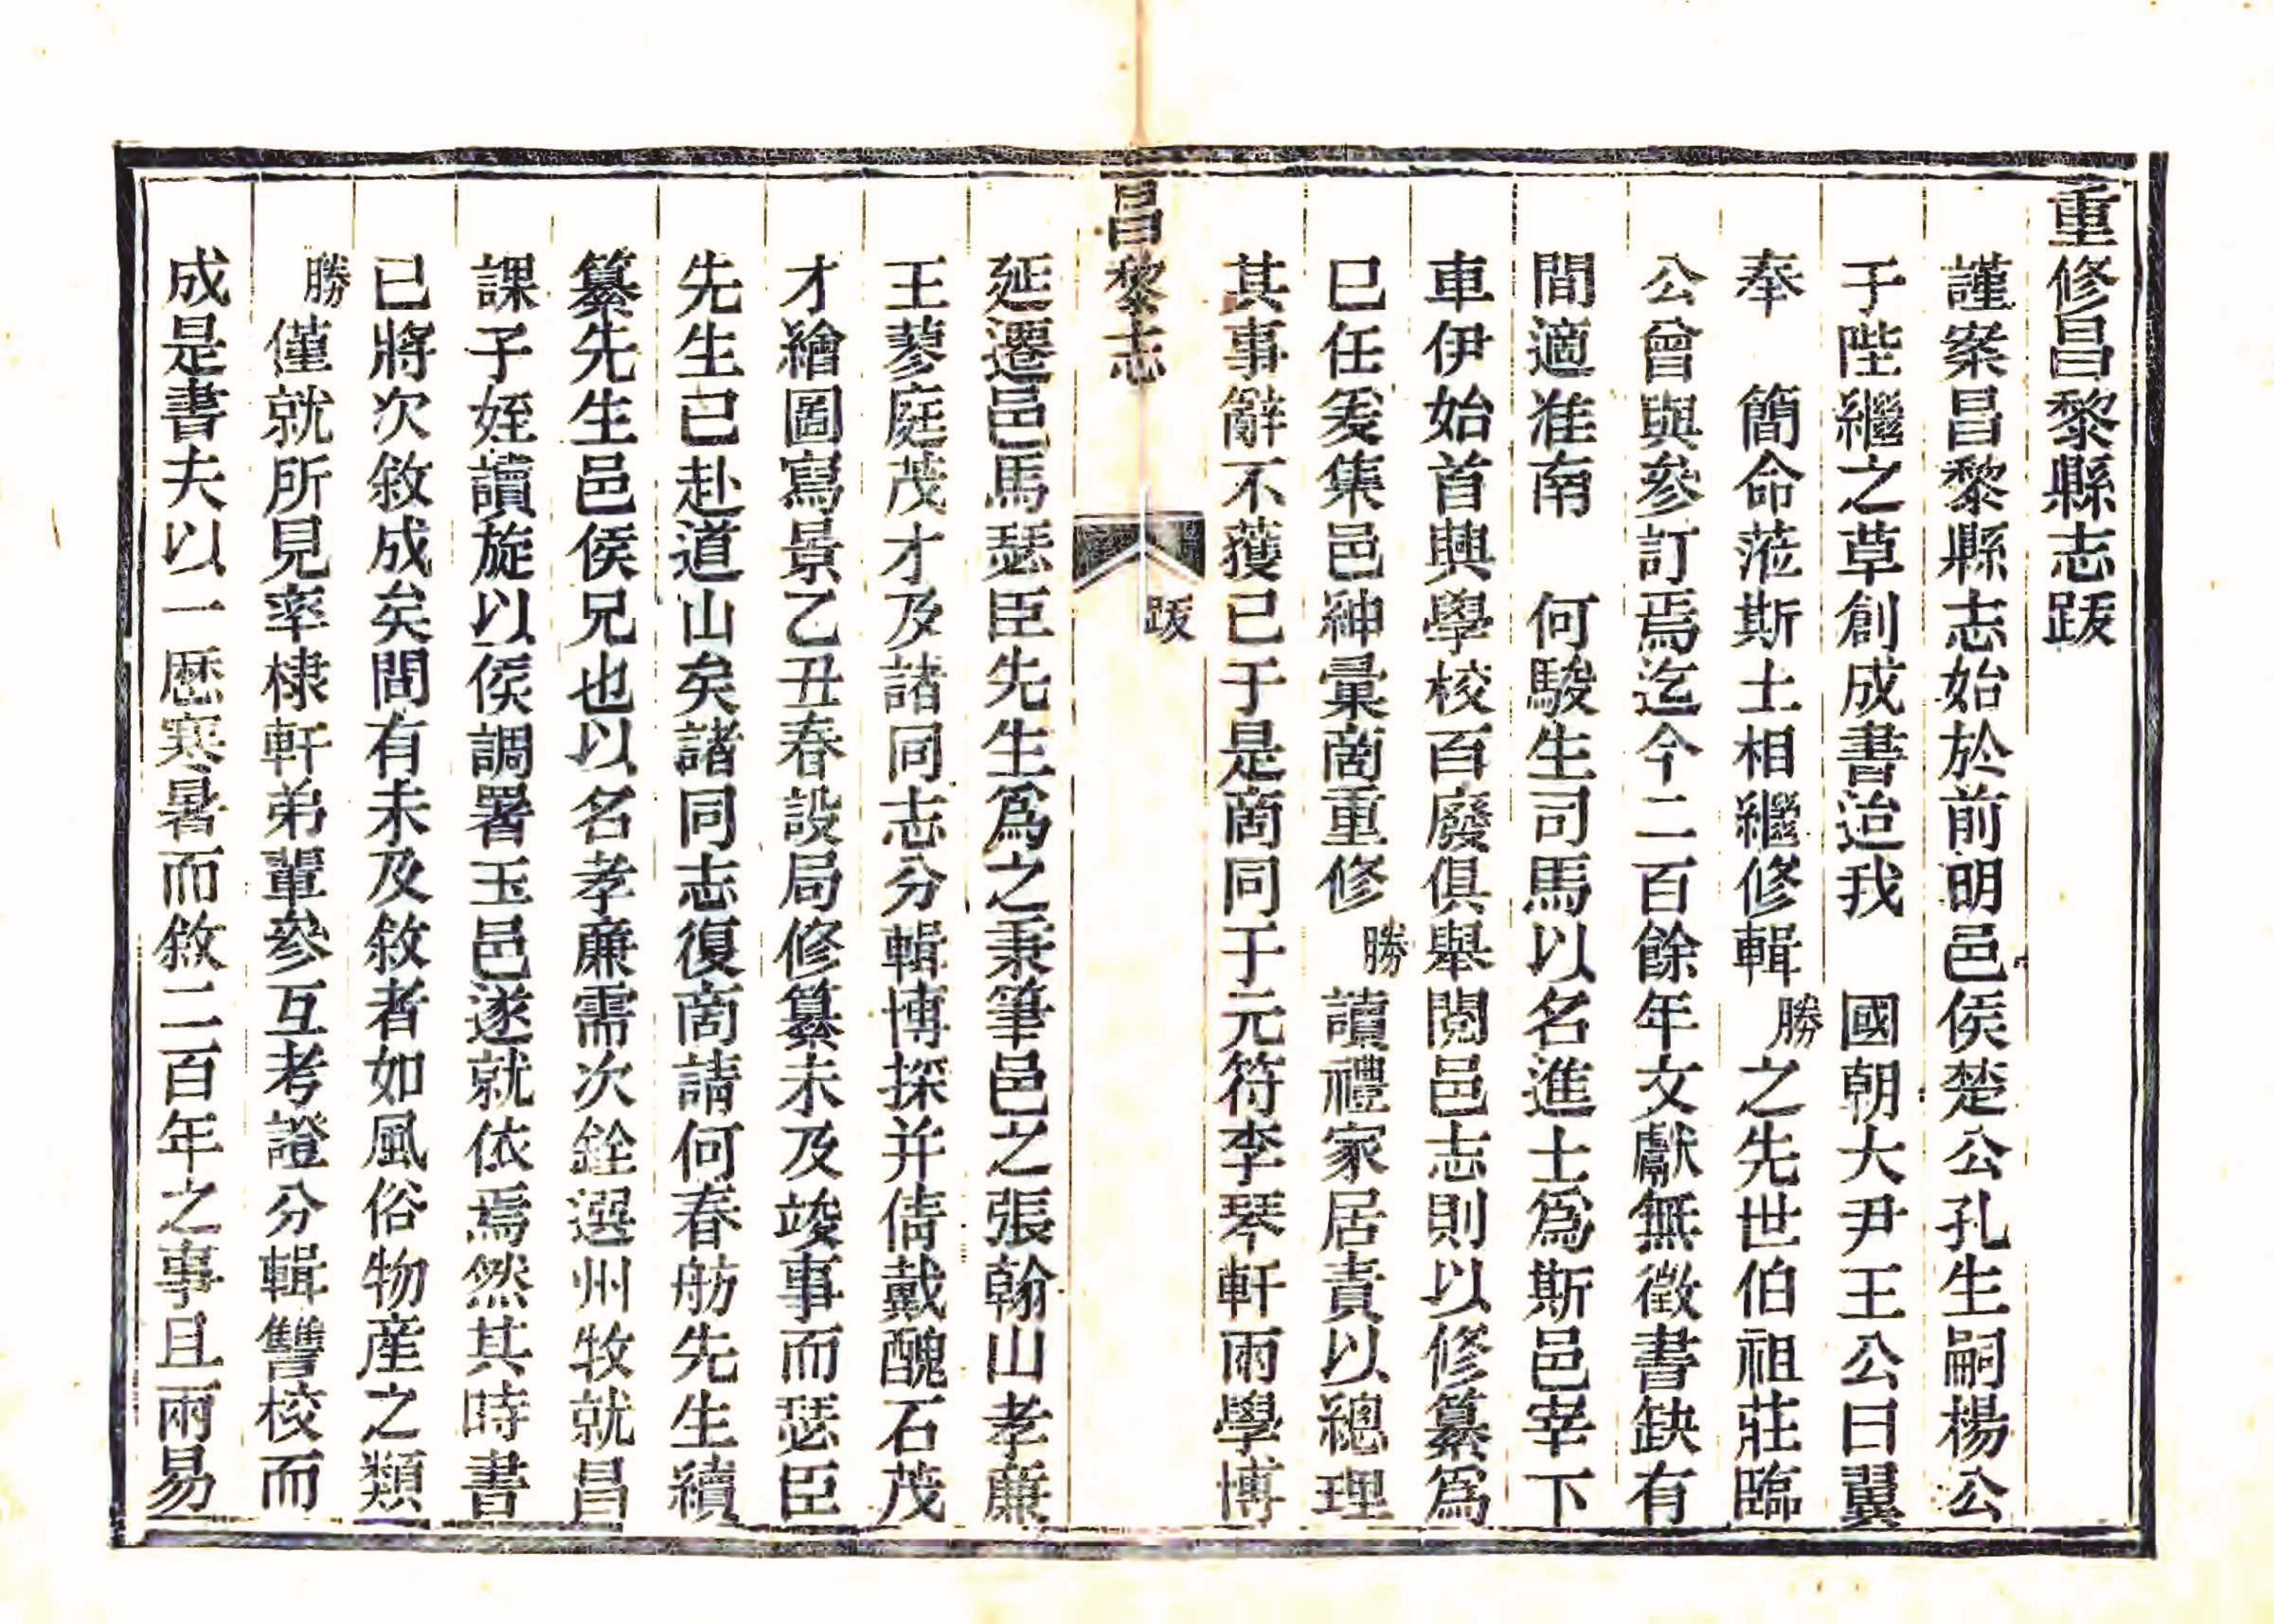 重修昌黎縣志跋
謹案昌黎縣志始於前明邑侯楚公孔生嗣楊公
于陛繼之草創成書迨我　國朝大尹王公曰翼
奉　簡命蒞斯土相繼修輯勝之先世伯祖莊臨
公曾與參訂焉迄今二百餘年文獻無徵書缺有
間適淮南　何駿生司馬以名進士爲斯邑宰下
車伊始首興學校百廢俱舉閱邑志則以修纂爲
已任爰集邑紳彙啇重修勝讀禮家居責以總理
其事辭不獲已于是啇同于元符李琴軒兩學博
昌黎志
跋
延遷邑馬瑟臣先生爲之秉筆邑之張翰山孝廉
王蓼庭茂才及諸同志分輯博採并倩戴醜石茂
才繪圖寫景乙丑春設局修纂未及竣事而瑟臣
先生已赴道山矣諸同志復啇請何春舫先生續
纂先生邑侯兄也以名孝廉需次銓選州牧就昌
課子姪讀旋以侯調署玉邑遂就依焉然其時書
已將次敘成矣間有未及敘者如風俗物産之類
勝僅就所見率棣軒弟輩參互考證分輯讐校而
成是書夫以一歷寒暑而敘二百年之事且兩易